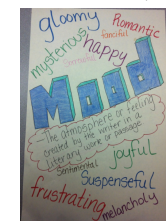 gloomy
Romantic
fanciful
mysterious
happy
Sentimental
Mood
The atmosphere or feeling
created by the writer in a
literary work or passage
joyful
Sentimental
Suspenseful
frustrating
melancholy